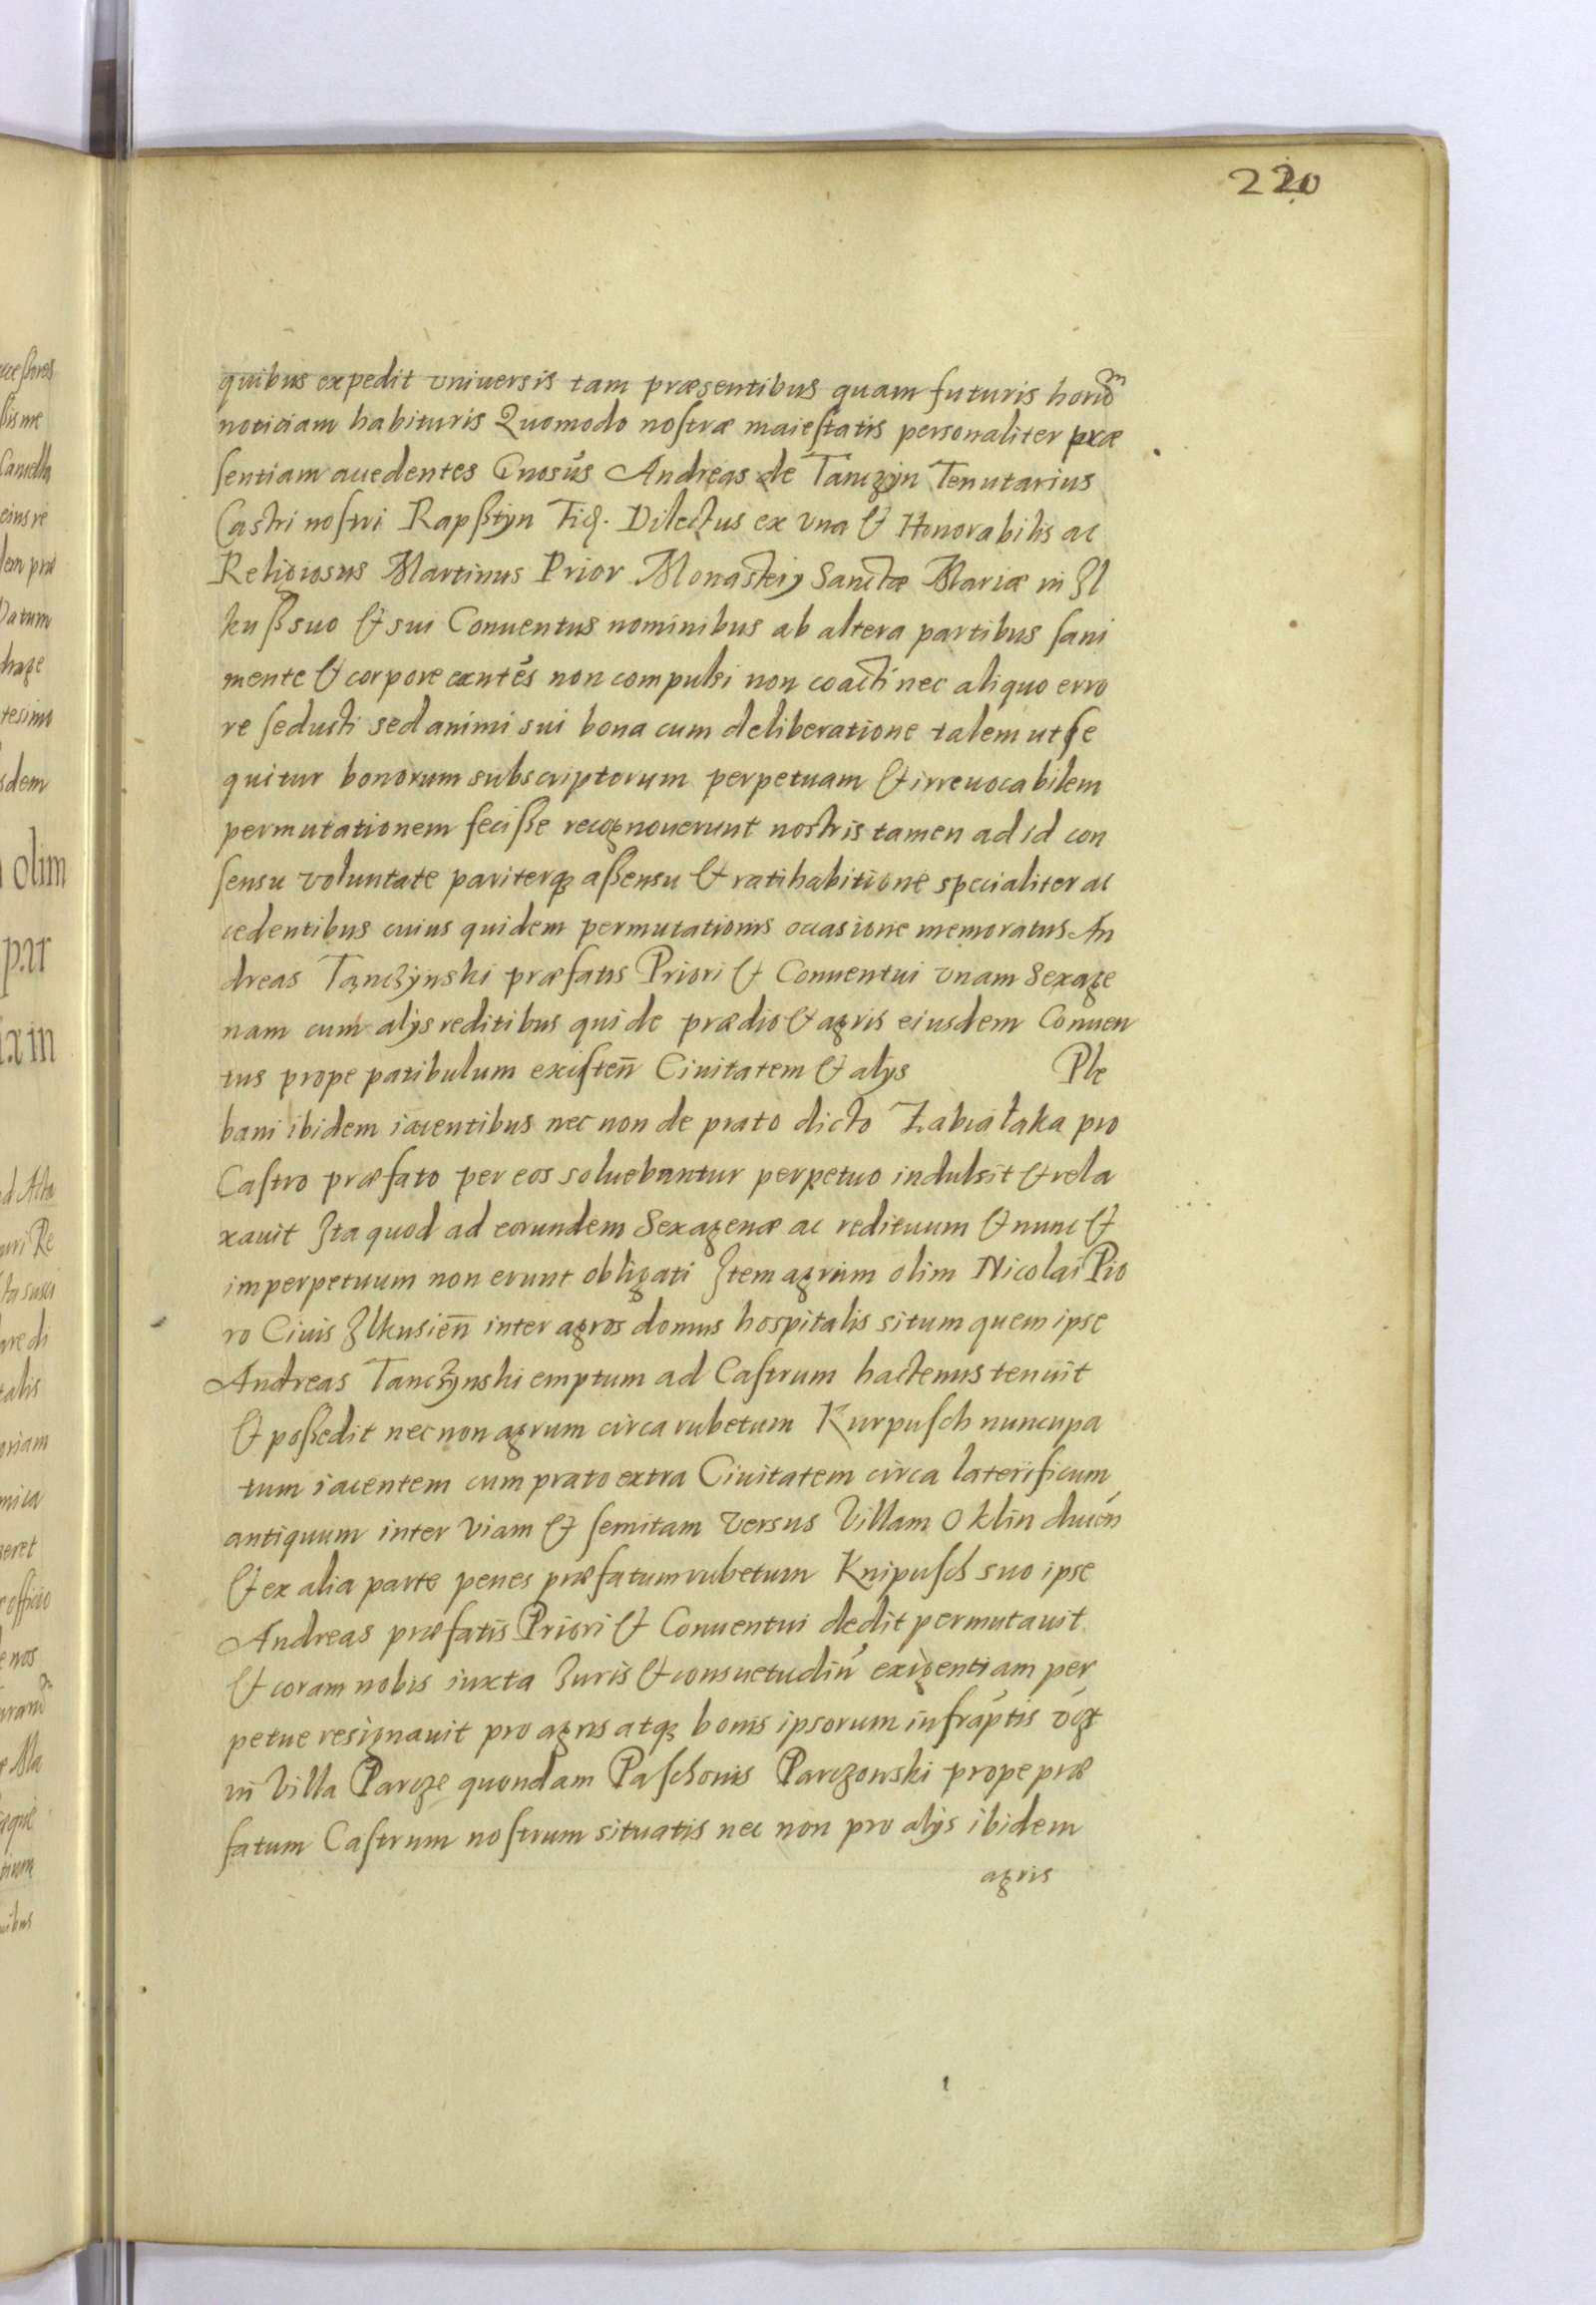 220
quibus expedit vniuersis tam præsentibus quam futuris horũ
noticiam habituris Quomodo nostræ maiestatis personaliter præ
sentiam accedentes Gnosus Andreas de Tanczyn Tenutarius
Castri nostri Rapßtyn Dilectus ex vna & Honorabilis ac
Religiosus Martinus Prior Monasterij Sanctæ Mariæ in Jl
kuß suo & sui Conuentus nominibus ab altera partibus sani
mente & corpore exntes non compulsi non coacti nec aliquo erro
re seducti sed animi sui bona cum deliberatione talem ut se
quitur bonorum subscriptorum perpetuam & irreuocabilem
permutationem feciße recognouerunt nostris tamen ad id con
sensu voluntate pariterq aßensu & ratihabitione specialiter ac
cedentibus cuius quidem permutationis occasione memoratus An
dreas Tanczynski præfatis Priori & Conuentui vnam Sexage
nam cum alijs reditibus qui de prædio & agris eiusdem Conuen
tus prope patibulum existen̄ Ciuitatem & alijs Ple
bani ibidem iacentibus nec non de prato dicto Zabia łaka pro
Castro præfato per eos soluebantur perpetuo indulsit & rela
xauit Jta quod ad eorundem Sexagenæ ac redituum & nunc &
imperpetuum non erunt obligati Jtem agrum olim Nicolai Pio
ro Ciuis Jlkusien̄ inter agros domus hospitalis situm quem ipse
Andreas Tanczynski emptum ad Castrum hactenus tenuit
& poßedit nec non agrum circa rubetum Kurpusch nuncupa
tum iacentem cum prato extra Ciuitatem circa laterificum
antiquum inter viam & semitam versus Villam Oklin ducen
& ex alia parte penes præfatum rubetum Knipusch suo ipse
Andreas præfatis Priori & Conuentui dedit permutauit
& coram nobis iuxta Juris & consuetudin exigentiam per
petue resignauit pro agris atq bonis ipsorum infraptis vġt
in Villa Parcze quondam Paschonis Parczowski prope præ
fatum Castrum nostrum situatis nec non pro alijs ibidem
agris